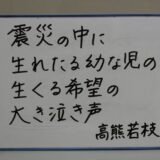 震災の中に
生れたる幼な児の
生くる希望の
大き泣き声
高熊若枝